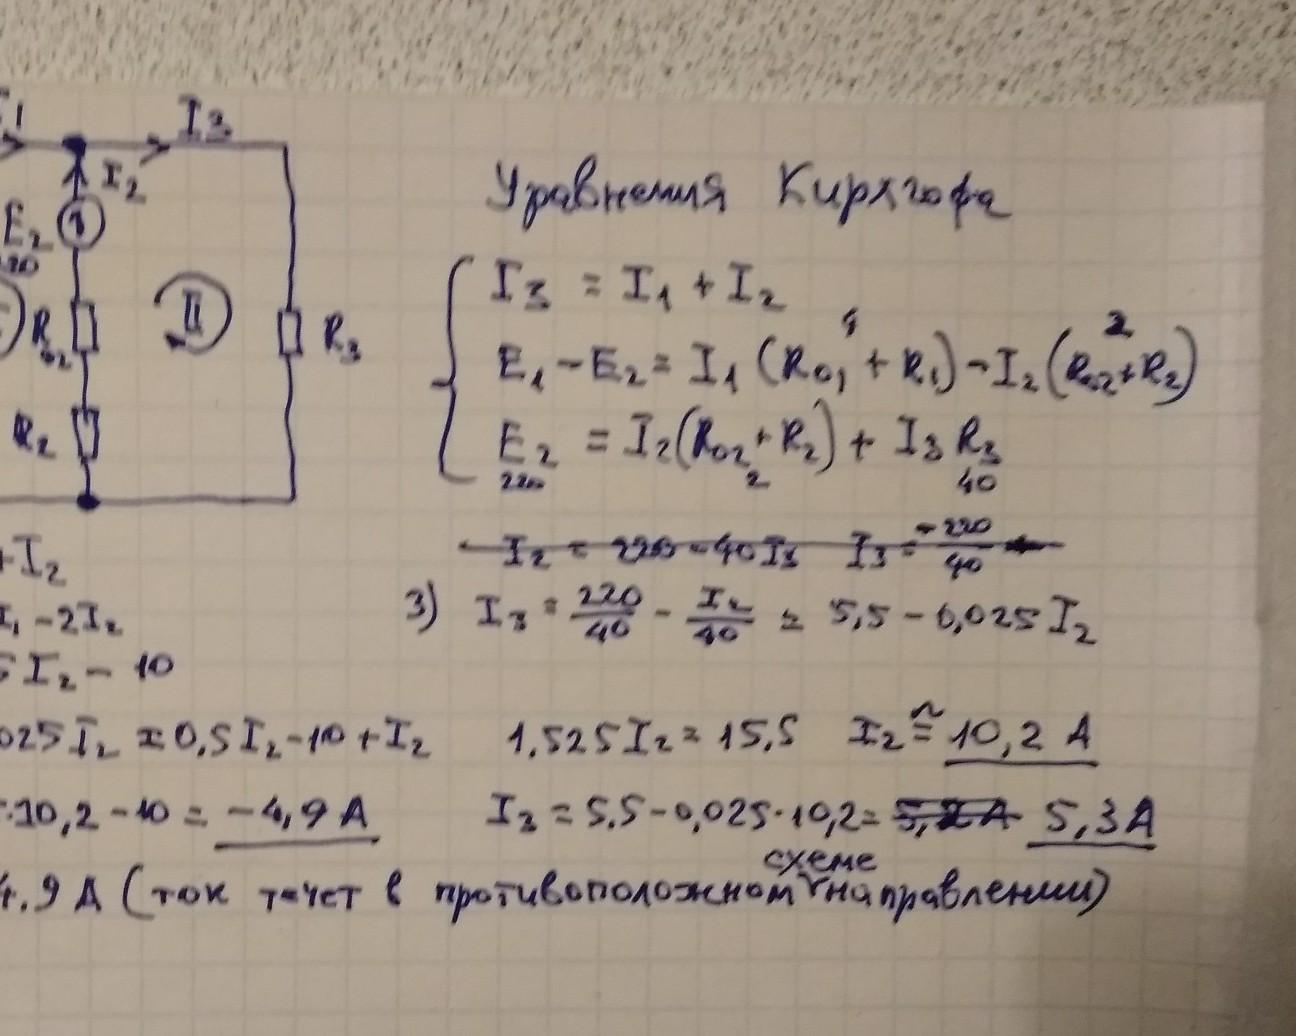 I3
I2
E2
II
R02
R3
R2
Уравнения Кирхгофа
I3 = I1 + I2
E1 - E2 = I1 (R01 + R1) - I2 (R02 + R2)
2
E2 = I2 (R02 + R2) + I3 R3
220 2 40
I2 = 220 - 40I3 I3 = -220/40
3) I3 = 220/40 - I2/40 = 5,5 - 0,025 I2
+ I2
I1 - 2I2
I2 - 10
025 I2 = 0,5 I2 - 10 + I2 1,525 I2 = 15,5 I2 ≅ 10,2 A
·10,2 - 10 = -4,9 A I3 = 5,5 - 0,025·10,2 = 5,3 A
схеме
4.9 A (ток течет в противоположном направлении)